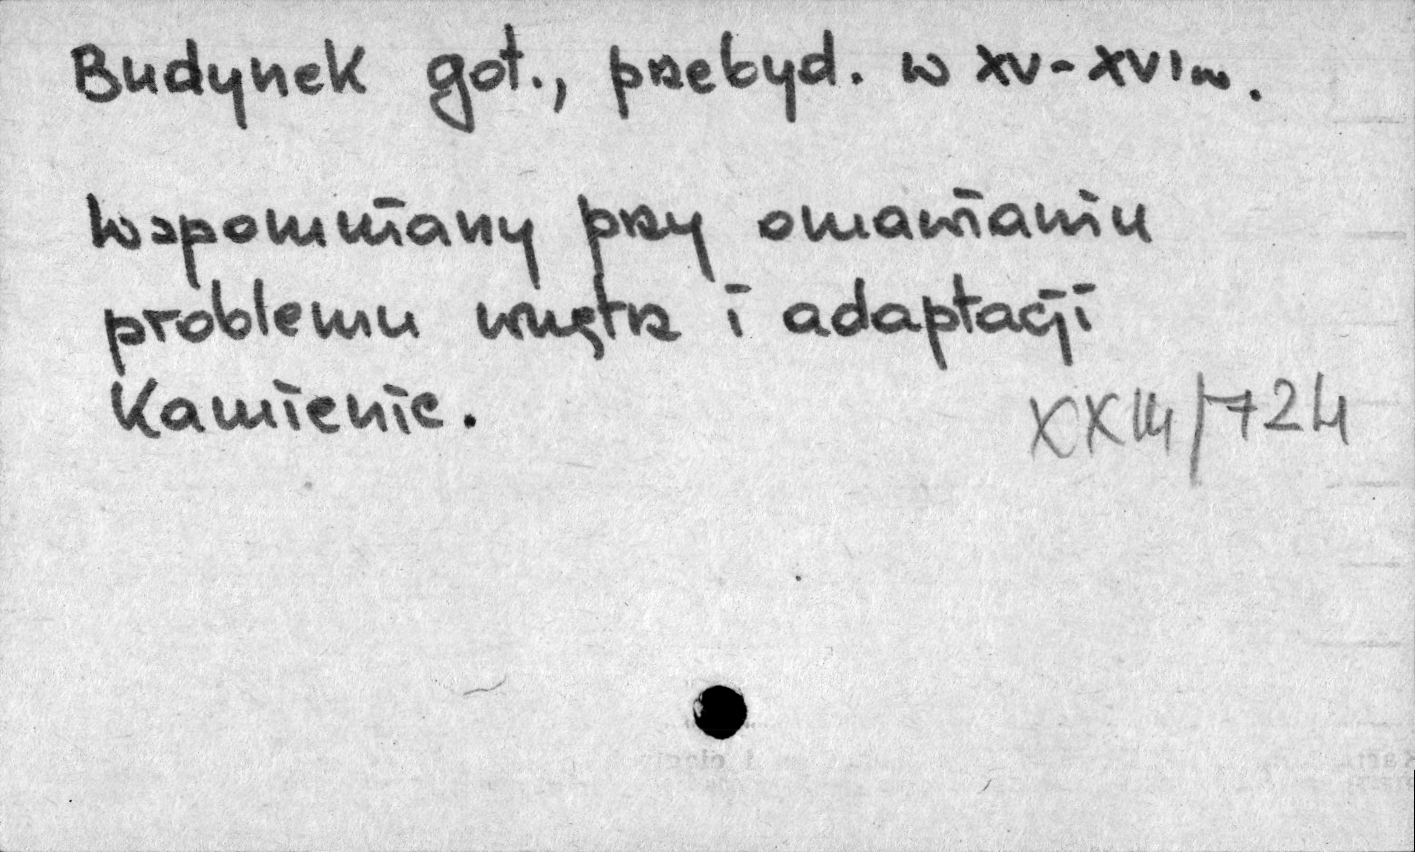 Budynek got., przebud. w XV-XVI w.
Wspomniany przy omawianiu
problemu wnętrz i adaptacji
Kamienic.
XXIII/724